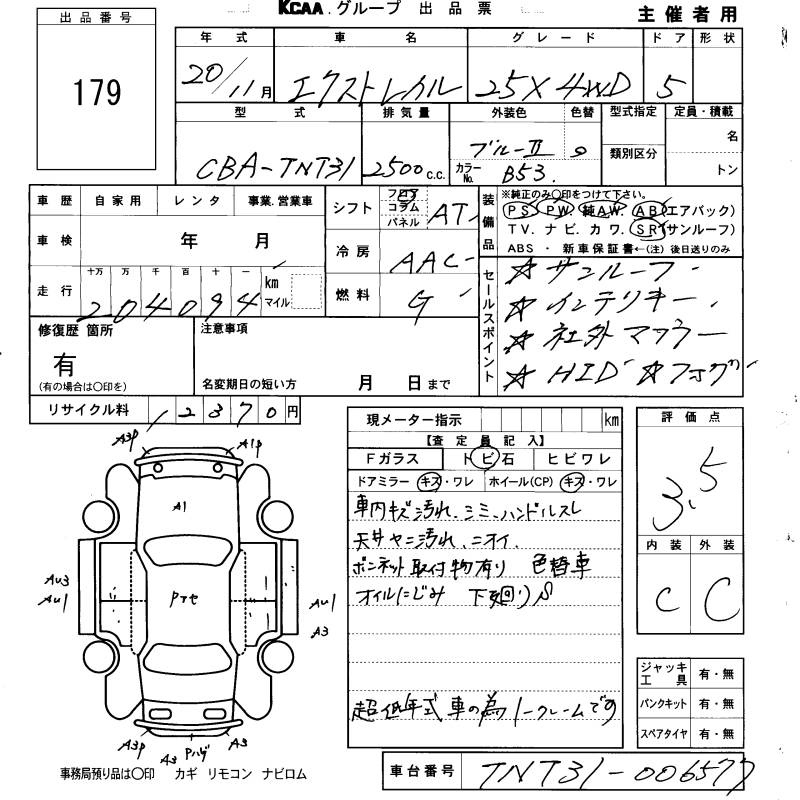 KCAA.グループ 出品票
主催者用
出品番号
179
年式 車名 グレード ドア 形状
20/11月 エクストレイル 25X 4WD 5
型式 排気量 外装色 色替 型式指定 定員・積載
CBA-TNT31 2500 c.c. ブルーII
カラーNo. B53
類別区分
名
トン
車歴 自家用 レンタ 事業.営業車
車検 年 月
走行 十万 万 千 百 十 一 km マイル
204094
シフト フロア コラム パネル AT
冷房 AAC
燃料 G
装備品
※純正のみ○印をつけて下さい。
PS. PW. 純AW. AB(エアバック)
TV. ナビ. カワ. SR(サンルーフ)
ABS ・ 新車保証書←(注) 後日送りのみ
セールスポイント
☆ サンルーフ
☆ インテリキー
☆ 社外マフラー
☆ HID ☆フォグ
修復歴 箇所
有
(有の場合は○印を)
注意事項
名変期日の短い方 月 日まで
リサイクル料 12870円
現メーター指示 km
【査定員記入】
Fガラス トビ石 ヒビワレ
ドアミラー キズ・ワレ ホイール(CP) キズ・ワレ
車内キズ汚れ、シミ、ハンドルスレ
天井ヤニ汚れ、ニオイ、
ボンネット取付物有り 色替車
オイルにじみ 下廻りS
超低年式車の為ノークレームです
評価点
3.5
内装 外装
C C
ジャッキ工具 有・無
パンクキット 有・無
スペアタイヤ 有・無
A3P A1P
A1
AU3
AU1
Pアセ
AU1
A3
A3P A3 Pハゲ A3
事務局預り品は○印 カギ リモコン ナビロム
車台番号 TNT31-006577